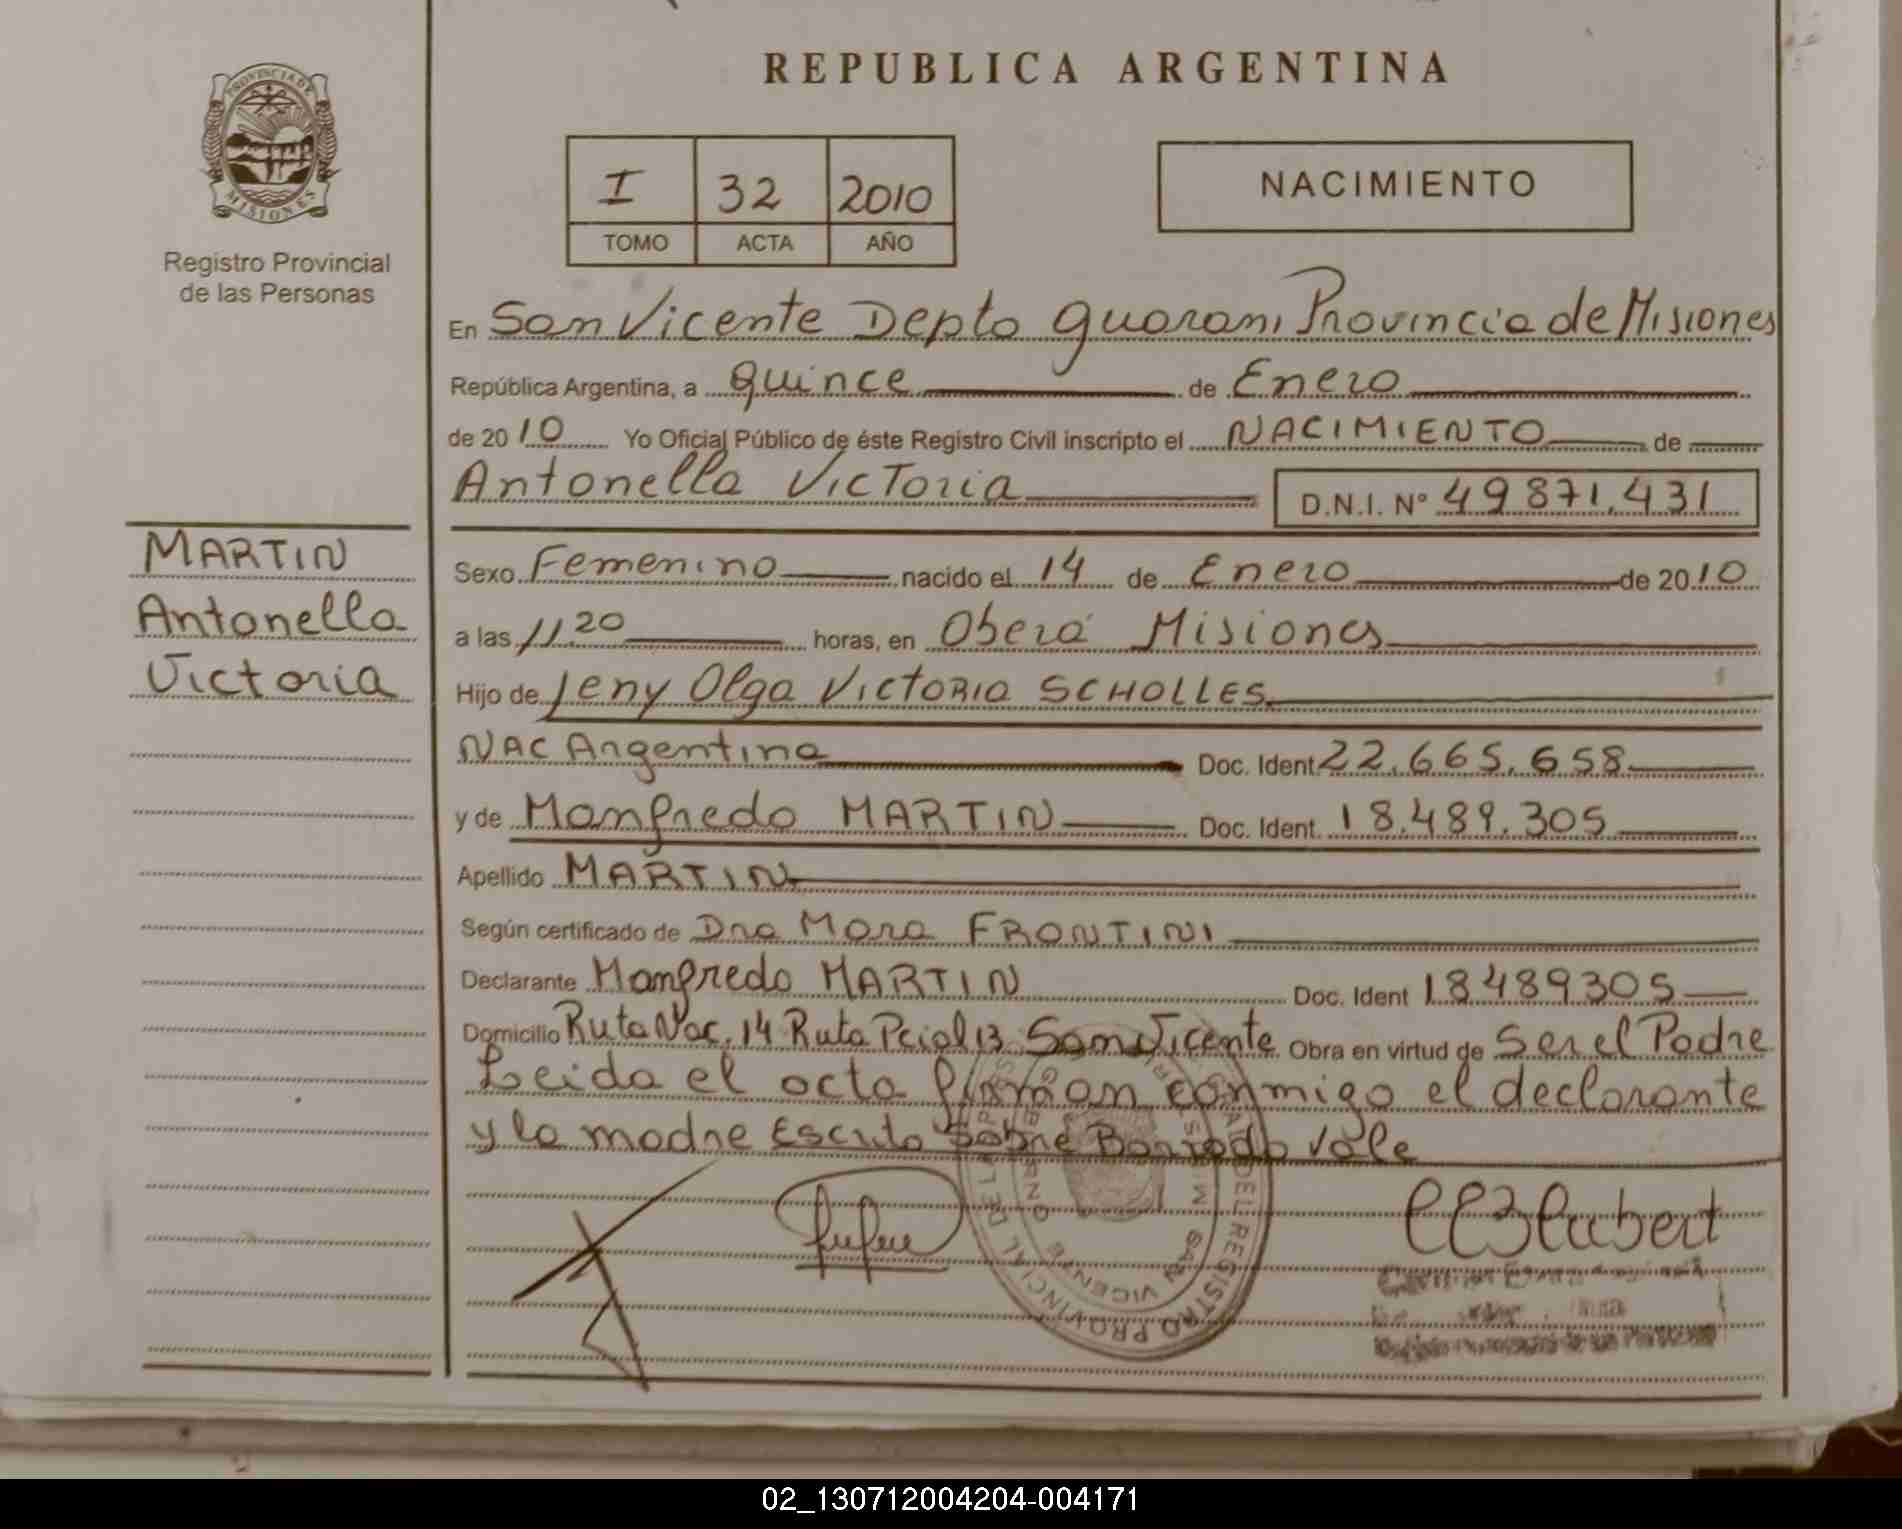 REPUBLICA ARGENTINA
PROVINCIA DE
MISIONES
Registro Provincial
de las Personas
I 32 2010
TOMO ACTA AÑO
NACIMIENTO
En San Vicente Depto Guarani Provincia de Misiones
República Argentina, a quince de Enero
de 2010 Yo Oficial Público de éste Registro Civil inscripto el NACIMIENTO de
Antonella Victoria D.N.I. Nº 49871.431
MARTIN
Antonella
Victoria
Sexo Femenino nacido el 14 de Enero de 2010
a las 11.20 horas, en Oberá Misiones
Hijo de Jeny Olga Victoria SCHOLLES
NAC Argentina Doc. Ident 22.665.658
y de Manfredo MARTIN Doc. Ident. 18.489.305
Apellido MARTIN
Según certificado de Dra Mara FRONTINI
Declarante Manfredo MARTIN Doc. Ident 18489305
Domicilio Ruta Nac. 14 Ruta Pcial 13 San Vicente Obra en virtud de Ser el Padre
Leida el acta firman conmigo el declarante
y la madre Escrito Sobre Borrado Vale
DEL REGISTRO PROVINCIAL DE
SAN VICENTE
02_130712004204-004171